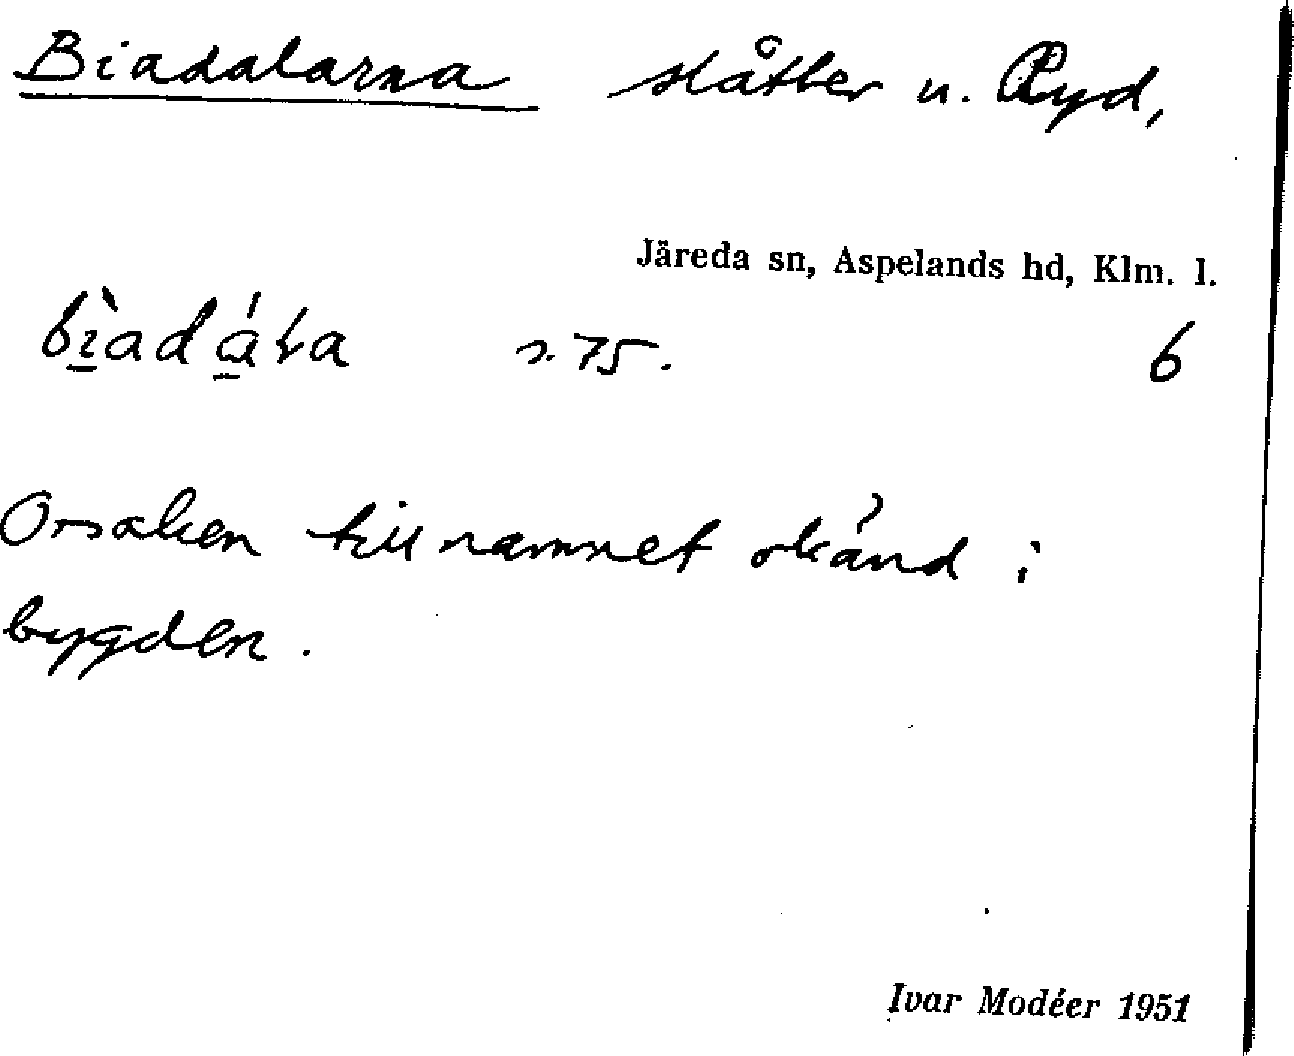 Biadalarna slåtter u. Ryd,
Järeda sn, Aspelands hd, Klm. l.
s. 75. 6
Orsaken till namnet okänd i
bygden.
Ivar Modéer 1951